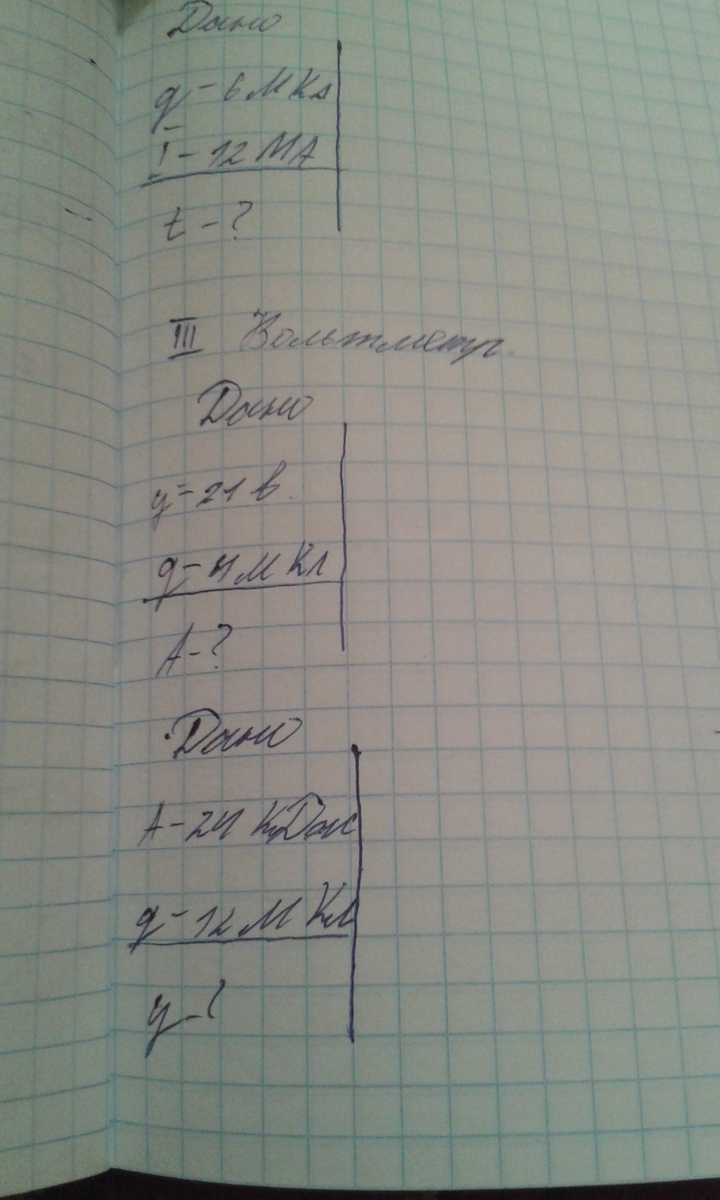 Дано
q - 6 МКл
I - 12 МА
t - ?
III Вольтметр.
Дано
у = 21 в.
q - 4 М Кл
А - ?
Дано
А - 24 КДж
q - 12 М Кл
у - ?